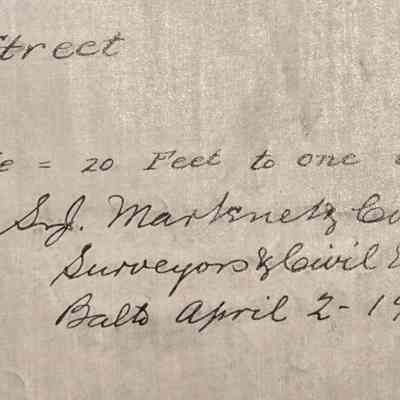 Street
= 20 Feet to one
S.J. Martenet & Co
Surveyors & Civil
Balto April 2 - 19